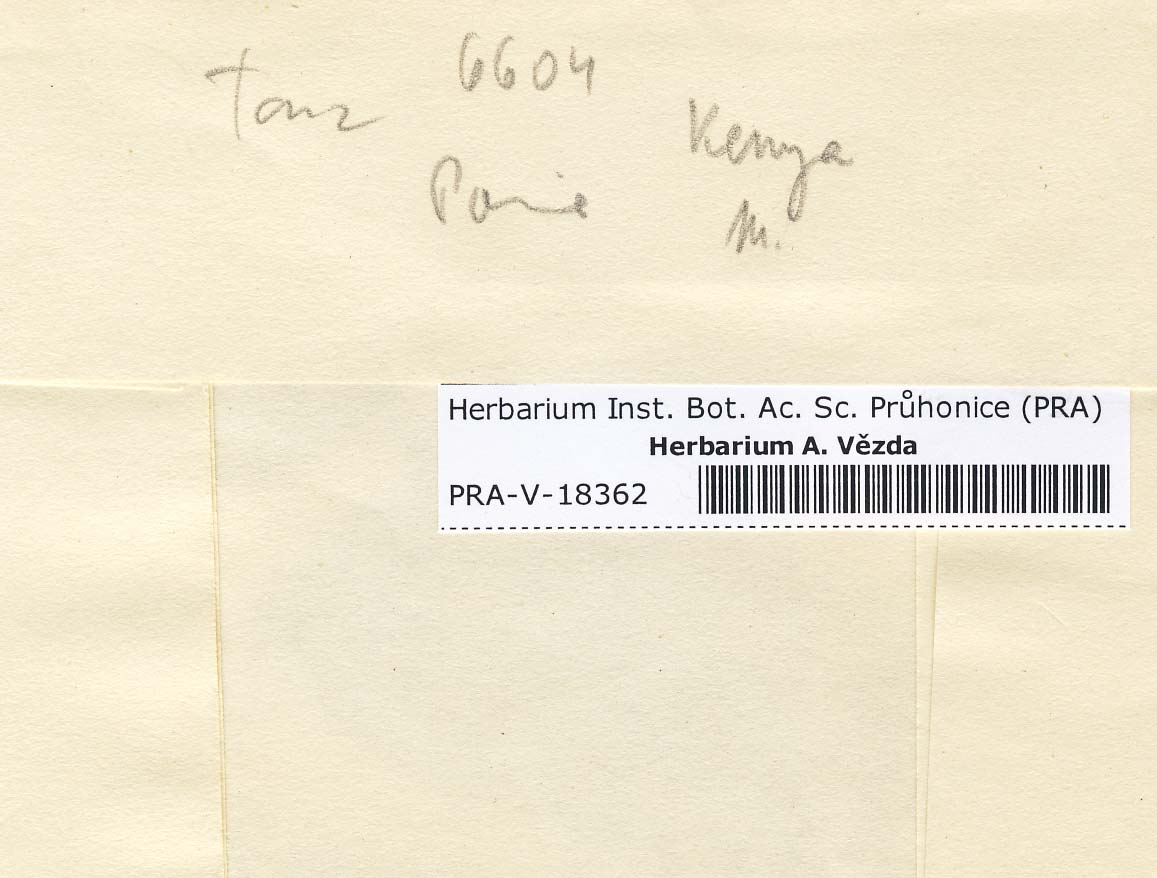 6604
Tanz
Kenya
M.
Herbarium Inst. Bot. Ac. Sc. Průhonice (PRA)
Herbarium A. Vězda
PRA-V-18362